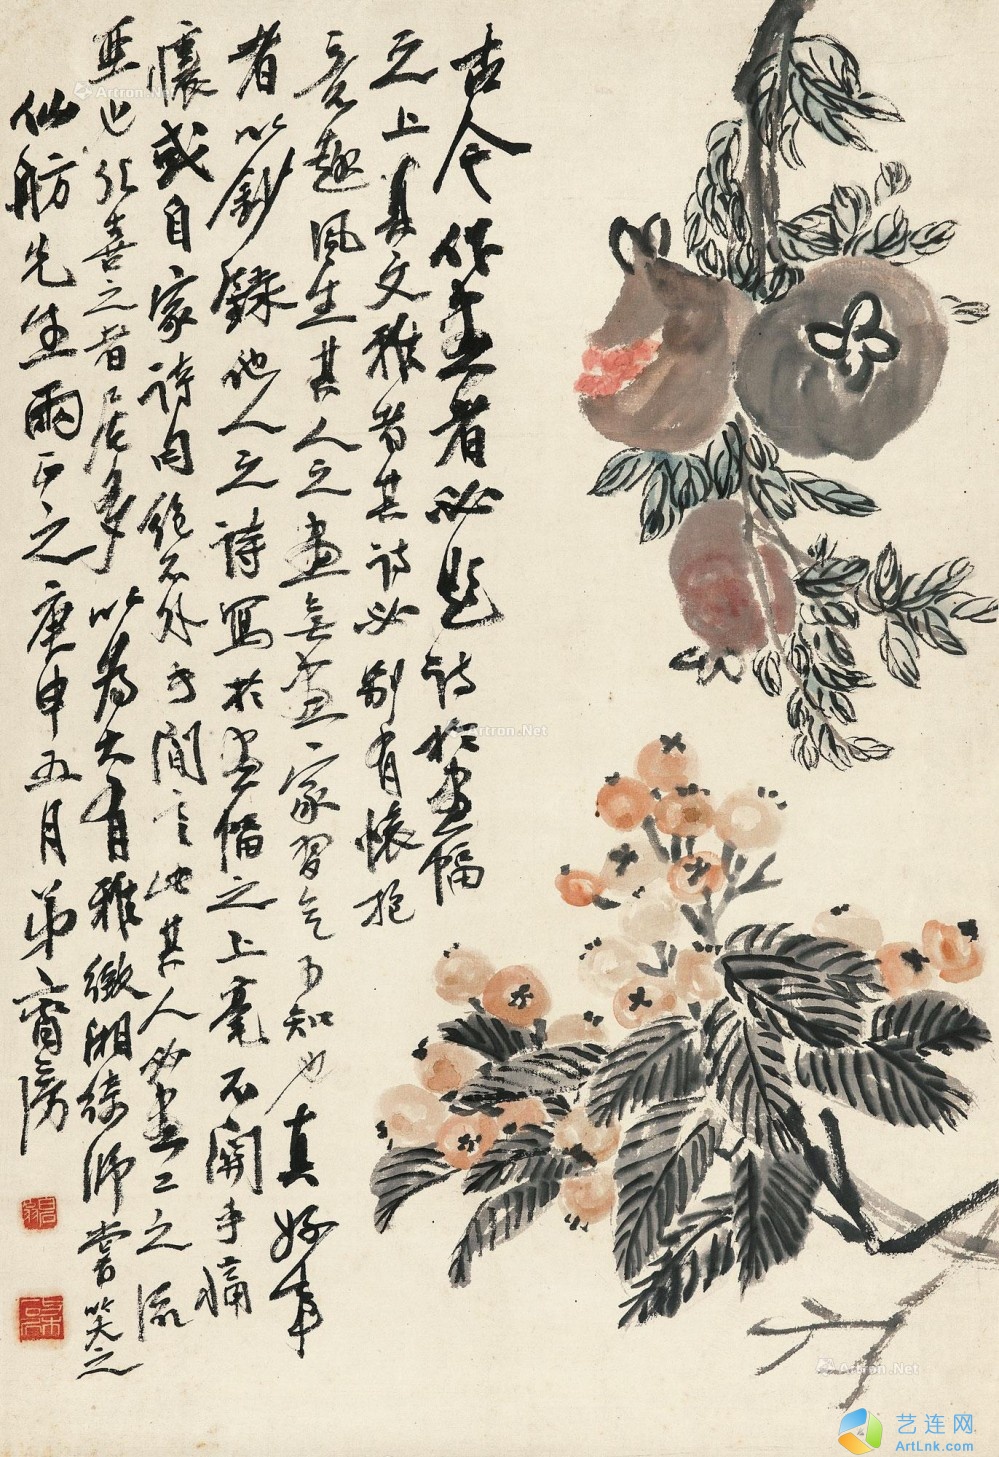 古今作畫者必題詩於畫幅
之上其文雅者其詩必別有懷抱
意趣風生其人之畫無畫家習气可知也真好事
者以鈔錄他人之詩寫於畫幅之上毫不關乎痛
癢或自家詩肉絕不外乎閒言此其人必畫工之流
亞也然喜之者居多以為大有雅緻湘綺師嘗笑之
仙舫先生兩正之庚申五月弟齊璜
Artron.Net
Artron.Net
Artron.Net
艺连网
ArtLnk.com